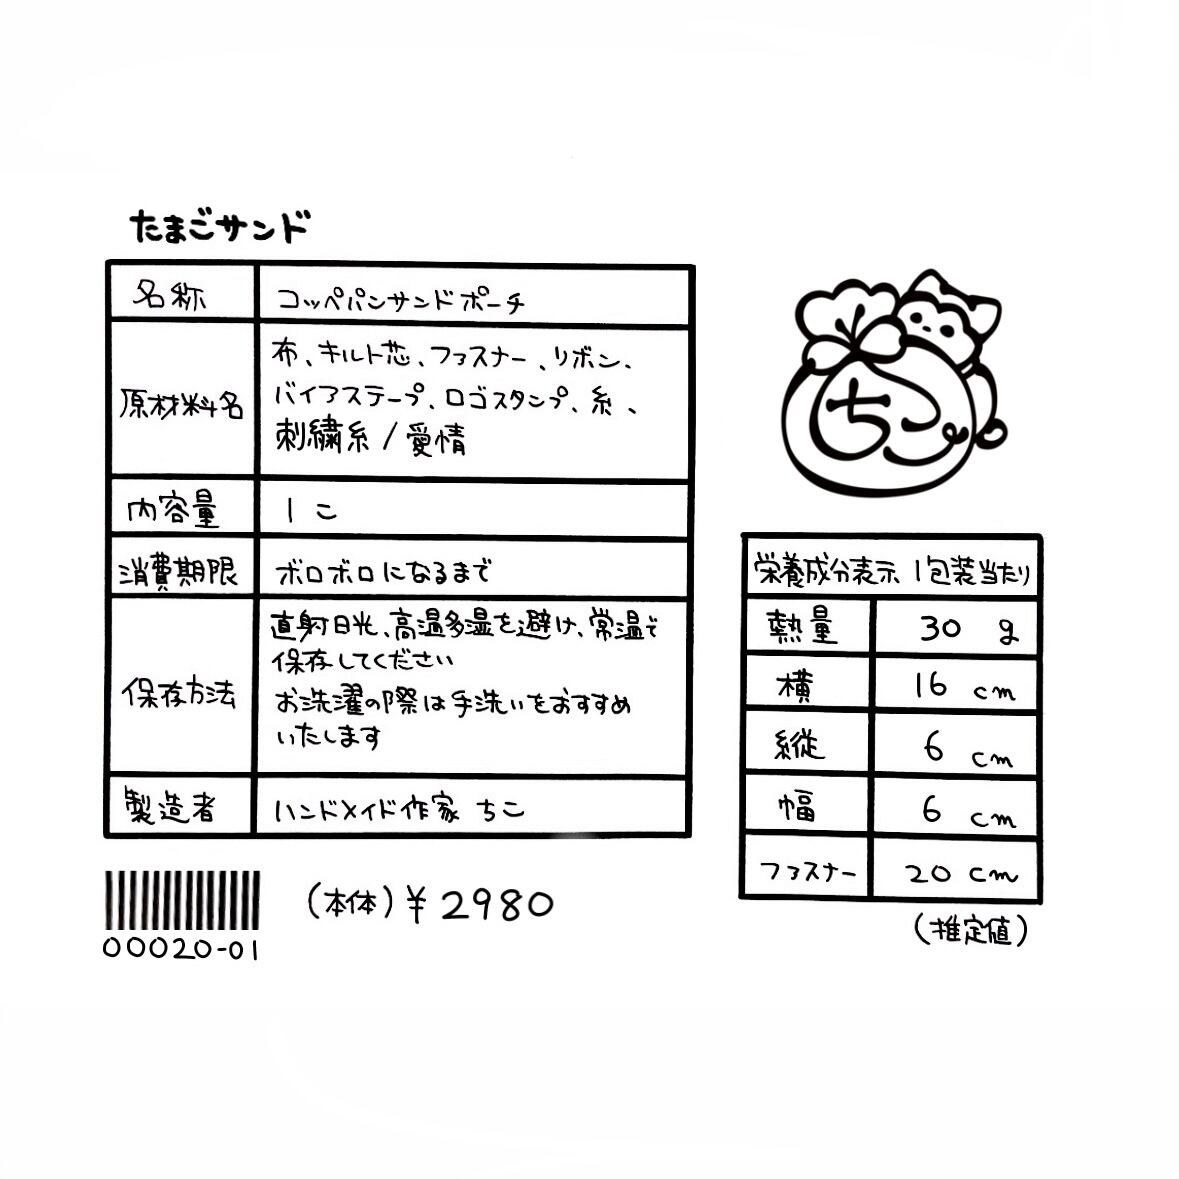 たまごサンド
名称 コッペパンサンドポーチ
原材料名 布、キルト芯、ファスナー、リボン、
バイアステープ、ロゴスタンプ、糸、
刺繍糸/愛情
内容量 1こ
消費期限 ボロボロになるまで
保存方法 直射日光、高温多湿を避け、常温で
保存してください
お洗濯の際は手洗いをおすすめ
いたします
製造者 ハンドメイド作家 ちこ
00020-01
(本体)¥2980
ちこ
栄養成分表示 1包装当たり
熱量 30 g
横 16 cm
縦 6 cm
幅 6 cm
ファスナー 20 cm
(推定値)